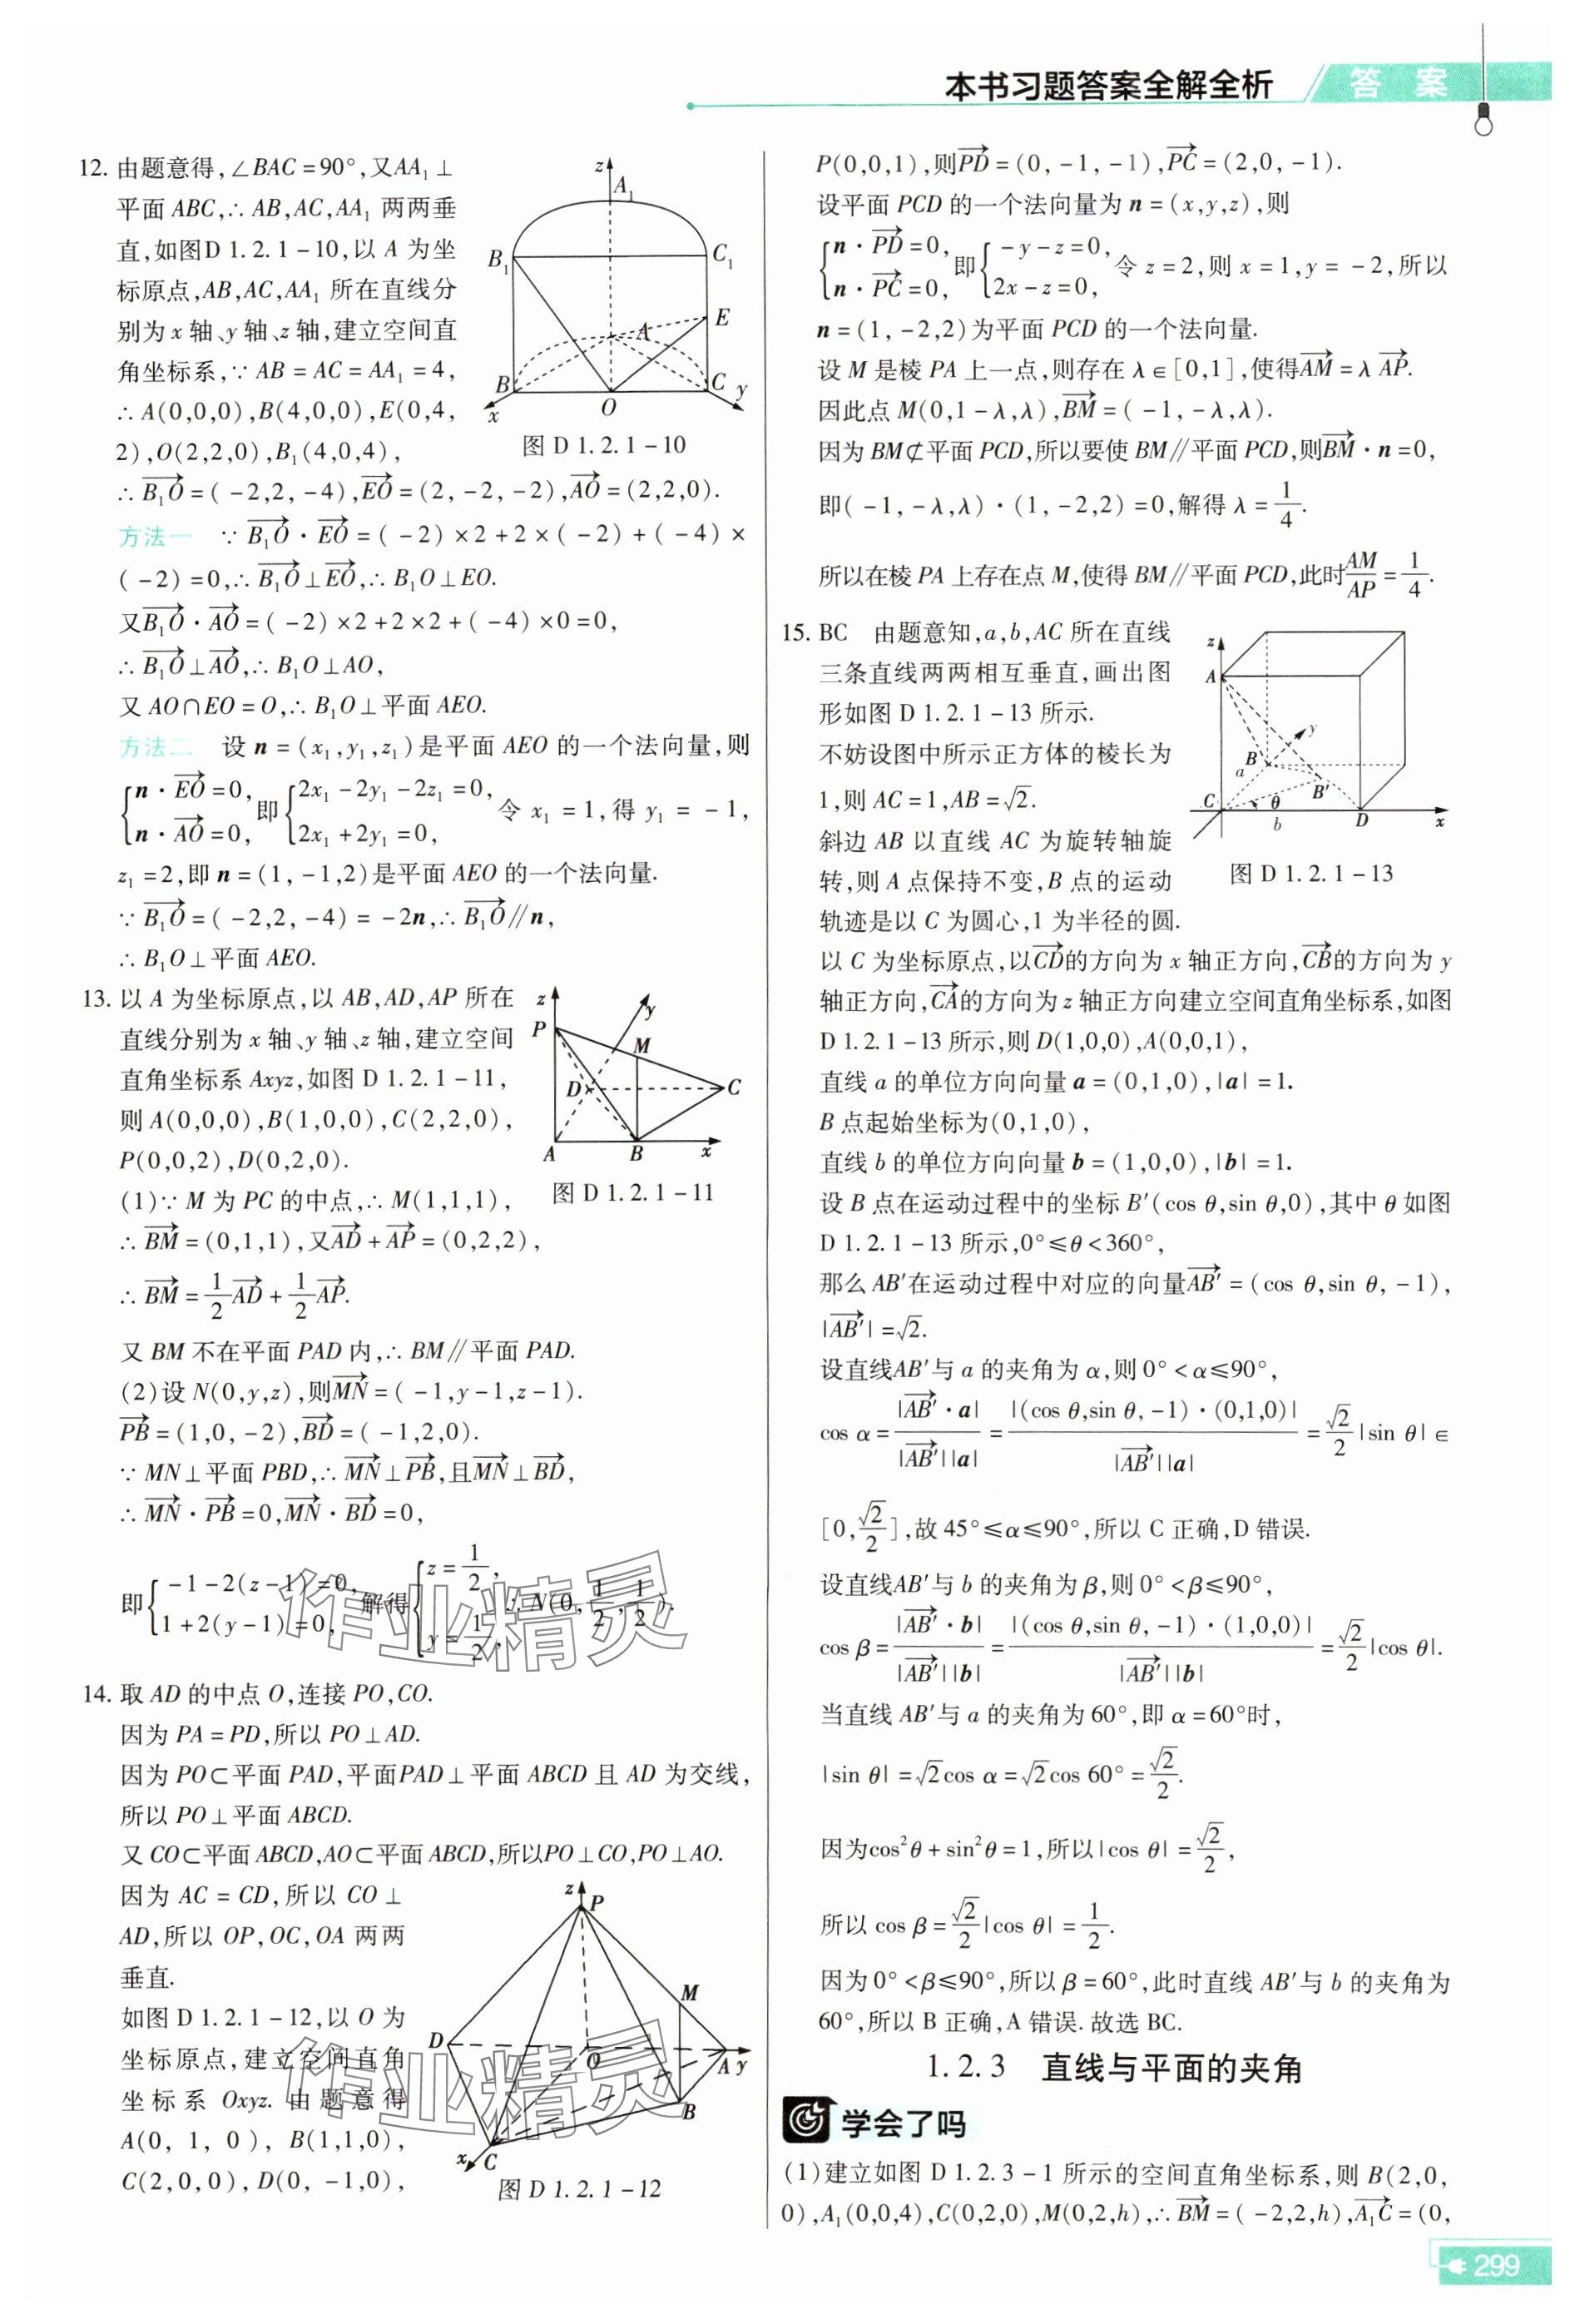 本书习题答案全解全析 答 案
12. 由题意得,∠BAC=90°,又AA₁⊥
平面 ABC,∴ AB,AC,AA₁ 两两垂
直,如图D 1.2.1-10,以 A 为坐
标原点,AB,AC,AA₁ 所在直线分
别为 x 轴、y 轴、z 轴,建立空间直
角坐标系,∵ AB=AC=AA₁=4,
∴ A(0,0,0),B(4,0,0),E(0,4,
2),O(2,2,0),B₁(4,0,4),
z
A₁
B₁
C₁
E
A
B
C
y
x
O
图 D 1.2.1-10
∴ →B₁O=(-2,2,-4),→EO=(2,-2,-2),→AO=(2,2,0).
方法一 ∵ →B₁O·→EO=(-2)×2+2×(-2)+(-4)×
(-2)=0,∴ →B₁O⊥→EO,∴ B₁O⊥EO.
又→B₁O·→AO=(-2)×2+2×2+(-4)×0=0,
∴ →B₁O⊥→AO,∴ B₁O⊥AO,
又 AO∩EO=O,∴ B₁O⊥平面 AEO.
方法二 设 n=(x₁,y₁,z₁)是平面 AEO 的一个法向量,则
{n·→EO=0, n·→AO=0, 即{2x₁-2y₁-2z₁=0, 2x₁+2y₁=0, 令 x₁=1,得 y₁=-1,
z₁=2,即 n=(1,-1,2)是平面 AEO 的一个法向量.
∵ →B₁O=(-2,2,-4)=-2n,∴ →B₁O∥n,
∴ B₁O⊥平面 AEO.
13. 以 A 为坐标原点,以 AB,AD,AP 所在
直线分别为 x 轴、y 轴、z 轴,建立空间
直角坐标系 Axyz,如图 D 1.2.1-11,
则 A(0,0,0),B(1,0,0),C(2,2,0),
P(0,0,2),D(0,2,0).
(1)∵ M 为 PC 的中点,∴ M(1,1,1),
z
y
P
M
D
C
A
B
x
图 D 1.2.1-11
∴ →BM=(0,1,1),又→AD+→AP=(0,2,2),
∴ →BM=1/2→AD+1/2→AP.
又 BM 不在平面 PAD 内,∴ BM∥平面 PAD.
(2)设 N(0,y,z),则→MN=(-1,y-1,z-1).
→PB=(1,0,-2),→BD=(-1,2,0).
∵ MN⊥平面 PBD,∴ →MN⊥→PB,且→MN⊥→BD,
∴ →MN·→PB=0,→MN·→BD=0,
即{-1-2(z-1)=0, 1+2(y-1)=0, 解得{z=1/2, y=1/2, ∴ N(0,1/2,1/2).
作业精灵
14. 取 AD 的中点 O,连接 PO,CO.
因为 PA=PD,所以 PO⊥AD.
因为 PO⊂平面 PAD,平面PAD⊥平面 ABCD 且 AD 为交线,
所以 PO⊥平面 ABCD.
又 CO⊂平面 ABCD,AO⊂平面 ABCD,所以PO⊥CO,PO⊥AO.
因为 AC=CD,所以 CO⊥
AD,所以 OP,OC,OA 两两
垂直.
如图 D 1.2.1-12,以 O 为
坐标原点,建立空间直角
坐标系 Oxyz.由题意得
A(0,1,0),B(1,1,0),
C(2,0,0),D(0,-1,0),
z
P
M
D
O
A y
B
x
C
图 D 1.2.1-12
作业精灵
P(0,0,1),则→PD=(0,-1,-1),→PC=(2,0,-1).
设平面 PCD 的一个法向量为 n=(x,y,z),则
{n·→PD=0, n·→PC=0, 即{-y-z=0, 2x-z=0, 令 z=2,则 x=1,y=-2,所以
n=(1,-2,2)为平面 PCD 的一个法向量.
设 M 是棱 PA 上一点,则存在 λ∈[0,1],使得→AM=λ →AP.
因此点 M(0,1-λ,λ),→BM=(-1,-λ,λ).
因为 BM⊄平面 PCD,所以要使 BM∥平面 PCD,则→BM·n=0,
即(-1,-λ,λ)·(1,-2,2)=0,解得 λ=1/4.
所以在棱 PA 上存在点 M,使得 BM∥平面 PCD,此时AM/AP=1/4.
15. BC 由题意知,a,b,AC 所在直线
三条直线两两相互垂直,画出图
形如图 D 1.2.1-13 所示.
不妨设图中所示正方体的棱长为
1,则 AC=1,AB=√2.
斜边 AB 以直线 AC 为旋转轴旋
转,则 A 点保持不变,B 点的运动
轨迹是以 C 为圆心,1 为半径的圆.
z
A
B
y
a
B′
C
θ
b
D
x
图 D 1.2.1-13
以 C 为坐标原点,以→CD的方向为 x 轴正方向,→CB的方向为 y
轴正方向,→CA的方向为 z 轴正方向建立空间直角坐标系,如图
D 1.2.1-13 所示,则 D(1,0,0),A(0,0,1),
直线 a 的单位方向向量 a=(0,1,0),|a|=1.
B 点起始坐标为(0,1,0),
直线 b 的单位方向向量 b=(1,0,0),|b|=1.
设 B 点在运动过程中的坐标 B′(cos θ,sin θ,0),其中 θ 如图
D 1.2.1-13 所示,0°≤θ<360°,
那么 AB′在运动过程中对应的向量→AB′=(cos θ,sin θ,-1),
|→AB′|=√2.
设直线AB′与 a 的夹角为 α,则 0°<α≤90°,
cos α=|→AB′·a|/|→AB′||a|=|(cos θ,sin θ,-1)·(0,1,0)|/|→AB′||a|=√2/2|sin θ|∈
[0,√2/2],故 45°≤α≤90°,所以 C 正确,D 错误.
设直线AB′与 b 的夹角为 β,则 0°<β≤90°,
cos β=|→AB′·b|/|→AB′||b|=|(cos θ,sin θ,-1)·(1,0,0)|/|→AB′||b|=√2/2|cos θ|.
当直线 AB′与 a 的夹角为 60°,即 α=60°时,
|sin θ|=√2cos α=√2cos 60°=√2/2.
因为cos²θ+sin²θ=1,所以|cos θ|=√2/2,
所以 cos β=√2/2|cos θ|=1/2.
因为 0°<β≤90°,所以 β=60°,此时直线 AB′与 b 的夹角为
60°,所以 B 正确,A 错误.故选 BC.
1.2.3 直线与平面的夹角
学会了吗
(1)建立如图 D 1.2.3-1 所示的空间直角坐标系,则 B(2,0,
0),A₁(0,0,4),C(0,2,0),M(0,2,h),∴ →BM=(-2,2,h),→A₁C=(0,
299